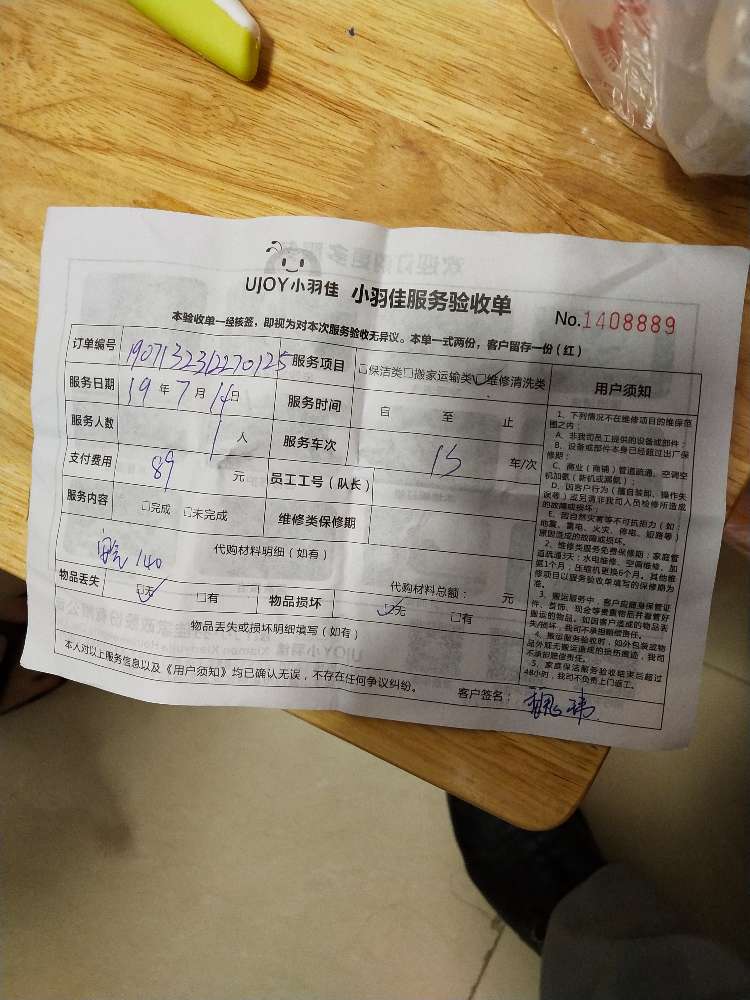 UJOY小羽佳 小羽佳服务验收单
No.1408889
本验收单一经核签，即视为对本次服务验收无异议。本单一式两份，客户留存一份（红）
订单编号 服务项目 □保洁类□搬家运输类□维修清洗类
服务日期 19 年 7 月 14 日 服务时间 自 至 止
服务人数 1 人 服务车次 车/次
支付费用 89 元 员工工号（队长）
服务内容 □完成 □未完成 维修类保修期
代购材料明细（如有）
140
代购材料总额： 元
物品丢失 □无 □有 物品损坏 □无 □有
物品丢失或损坏明细填写（如有）
本人对以上服务信息以及《用户须知》均已确认无误，不存在任何争议纠纷。
客户签名：
用户须知
1、下列情况不在维修项目的维保范
围之内：
A、非我司员工提供的设备或部件；
B、设备或部件本身已经超过出厂保
修期；
C、商业（商铺）管道疏通、空调空
机加氨（新机或漏氨）；
D、因客户行为（擅自装卸、操作失
误等）或另请非我司人员检修所造成
的故障或损坏；
E、因自然灾害等不可抗拒力（如：
地震、雷电、火灾、停电、短路等）
原因造成的故障或损坏。
2、维修类服务免费保修期：家庭管
道疏通3天；水电维修、空调维修、加
氨1个月；压缩机更换6个月。其他维
修项目以服务验收单填写的保修期为
准。
3、搬运服务中，客户应随身保管证
件、首饰、现金等贵重物后并看管好
搬运的物品。如因客户造成的物品丢
失/损坏，我司不承担赔偿责任。
4、搬运服务验收时，如外包装或物
品外观无搬运造成的损伤痕迹，我司
不承担赔偿责任。
5、家庭保洁服务验收结束后超过
48小时，我司不负责上门返工。